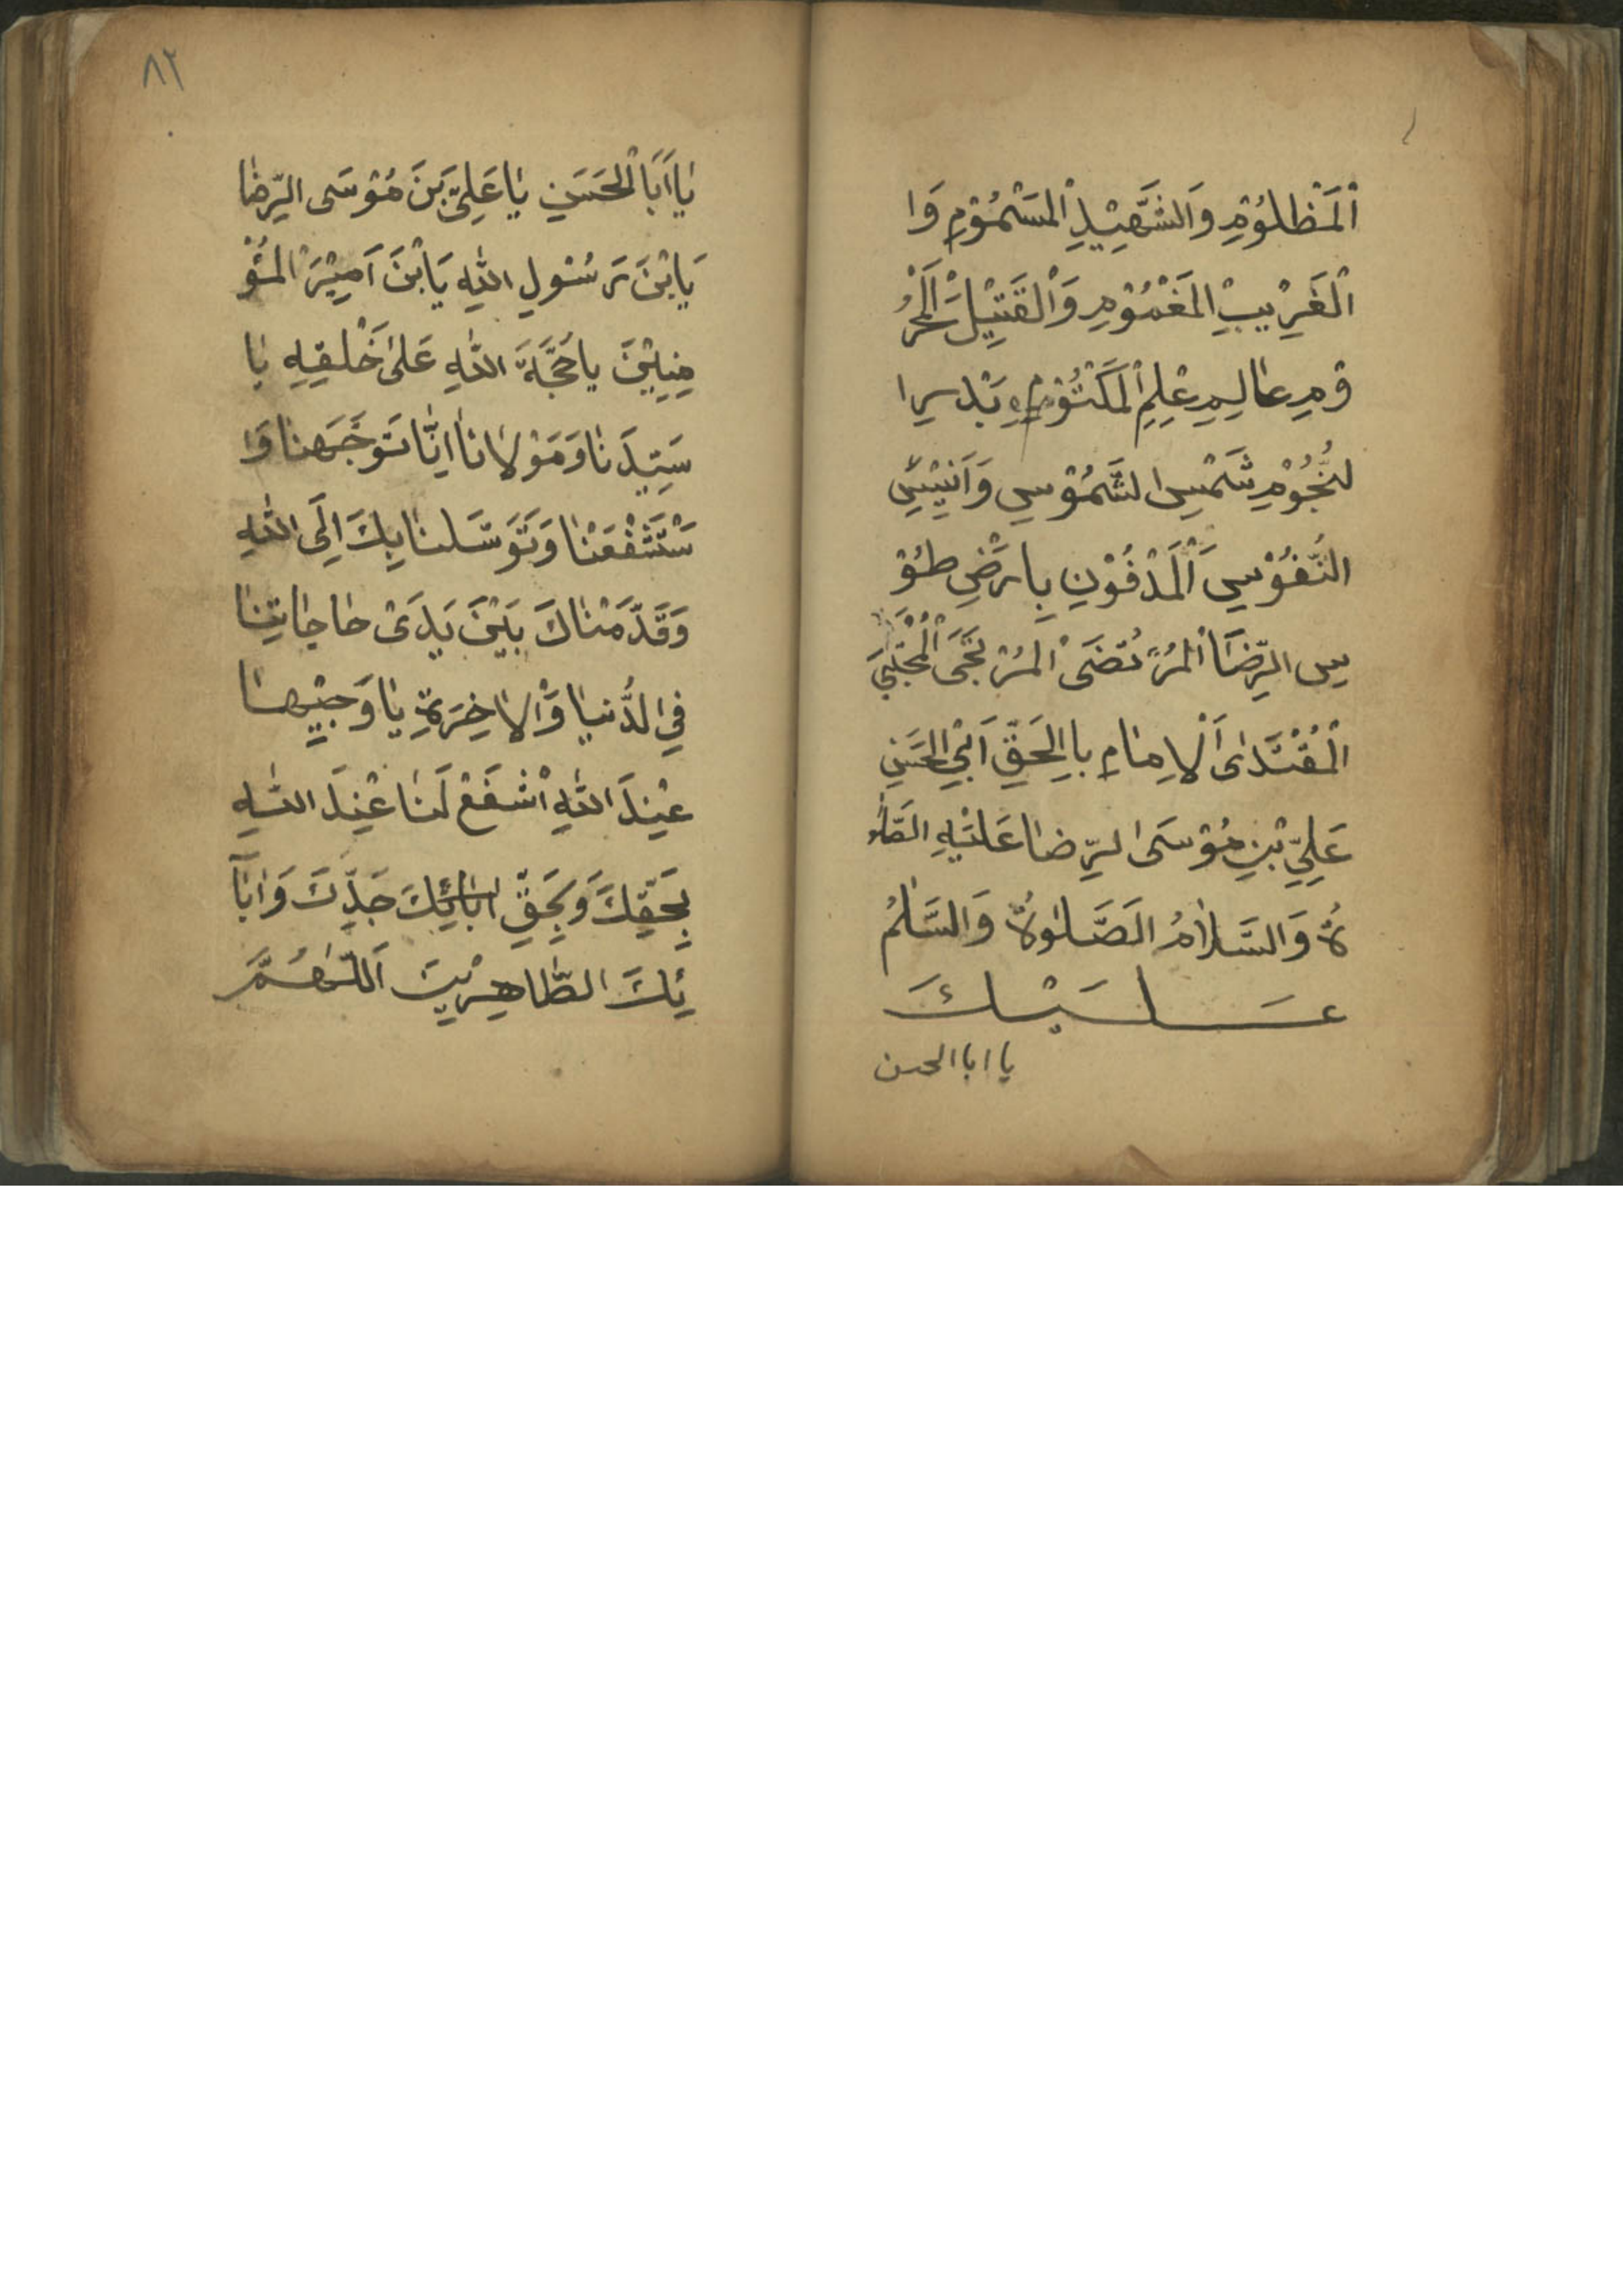 اَلْمَظْلُوْمِ وَالشَّهِيْدِ الْمَسْمُوْمِ وَا
الْغَرِيْبِ الْمَغْمُوْمِ وَالْقَتِيْلِ الْمَحْرُ
وْمِ عالِمِ عِلْمِ الْمَكْتُوْمِ بَدْرِ ا
لنُّجُوْمِ شَمْسِ الشُّمُوْسِ وَاَنِيْسِ
النُّفُوْسِ اَلْمَدْفُوْنِ بِارَضِ طُوْ
سِ الرِّضَا الْمُرْتَضَى الْمُرْتَجَى الْمُجْتَبَى
الْمُقْتَدٰى اَلْاِمٰامِ بِاالْحَقِّ اَبِى الْحَسَنِ
عَلِيِّ بْنِ مُوْسَى الرِّضٰا عَلَيْهِ الصَّلٰو
ةُ وَالسَّلاٰمُ الَصَّلٰوةُ وَالسَّلٰمُ
عَلَيْكَ
يا ابا الحسن
٨٢
يٰا اَبَا الْحَسَنِ يٰا عَلِىَّ بَنَ مُوْسَى الرِّضٰا
يَابْنَ رَسُوْلِ اللّٰهِ يَابْنَ اَمِيْرَ الْمُؤْ
مِنِيْنَ يا حُجَّةَ اللّٰهِ عَلىٰ خَلْقِهِ يٰا
سَيِّدَنٰا وَمَوْلانٰا اِنّٰا تَوَجَّهْنٰا وَا
سْتَشْفَعْنٰا وَتَوَسَّلنٰا بِكَ اِلَى اللّٰهِ
وَقَدَّمْنٰاكَ بَيْنَ يَدَىْ حٰاجٰاتِنٰا
فِى الدُّنيٰا وَالْاٰخِرَةِ يٰا وَجِيْهًا
عِنْدَ اللّٰهِ اشْفَعْ لَنٰا عِنْدَ اللّٰهِ
بِحَقِّكَ وَبِحَقِّ اٰبٰائِكَ جَدِّكَ وَاٰبٰآ
ئِكَ الطّٰاهِرِيْنَ اَللّٰهُمَّ